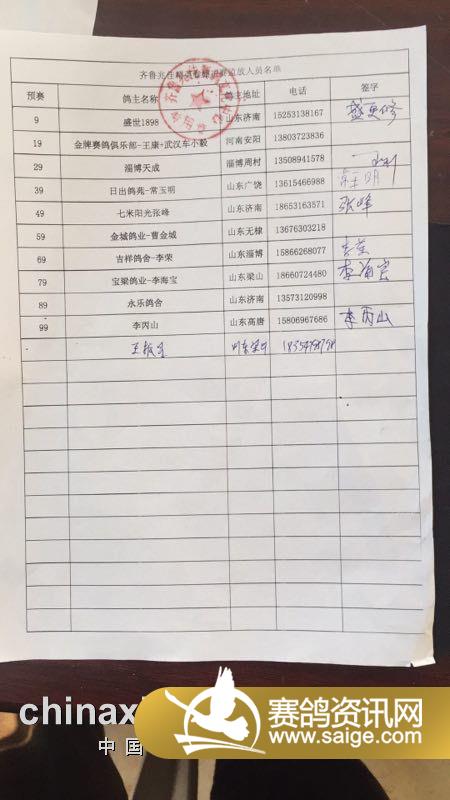 预赛 鸽主名称 鸽主地址 电话 签字
9 盛世1898 山东济南 15253138167
19 金牌赛鸽俱乐部-王康+武汉车小毅 河南安阳 13803723836
29 淄博天成 淄博周村 13508941578
39 日出鸽苑-常玉明 山东广饶 13615466988 常玉明
49 七米阳光张峰 山东济南 18653163571 张峰
59 金城鸽业-曹金城 山东无棣 13676303218
69 吉祥鸽舍-李荣 山东淄博 15866268077 李荣
79 宝梁鸽业-李海宝 山东梁山 18660724480 李海宝
89 永乐鸽舍 山东济南 13573120998
99 李丙山 山东高唐 15806967686 李丙山
chinax
中国
赛鸽资讯网
www.saige.com